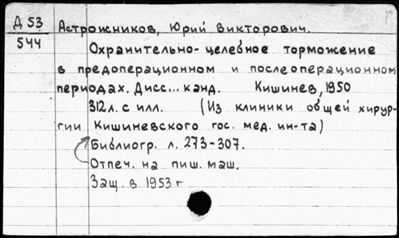 Д 53
544
Астрожников, Юрий Викторович.
Охранительно-целебное торможение
в предоперационном и послеоперационном
периодах. Дисс... канд. Кишинев, 1950
312л. с илл. (Из клиники общей хирур-
гии Кишиневского гос. мед. ин-та)
Библиогр. л. 273-307.
Отпеч. на пиш. маш.
Защ. в 1953 г